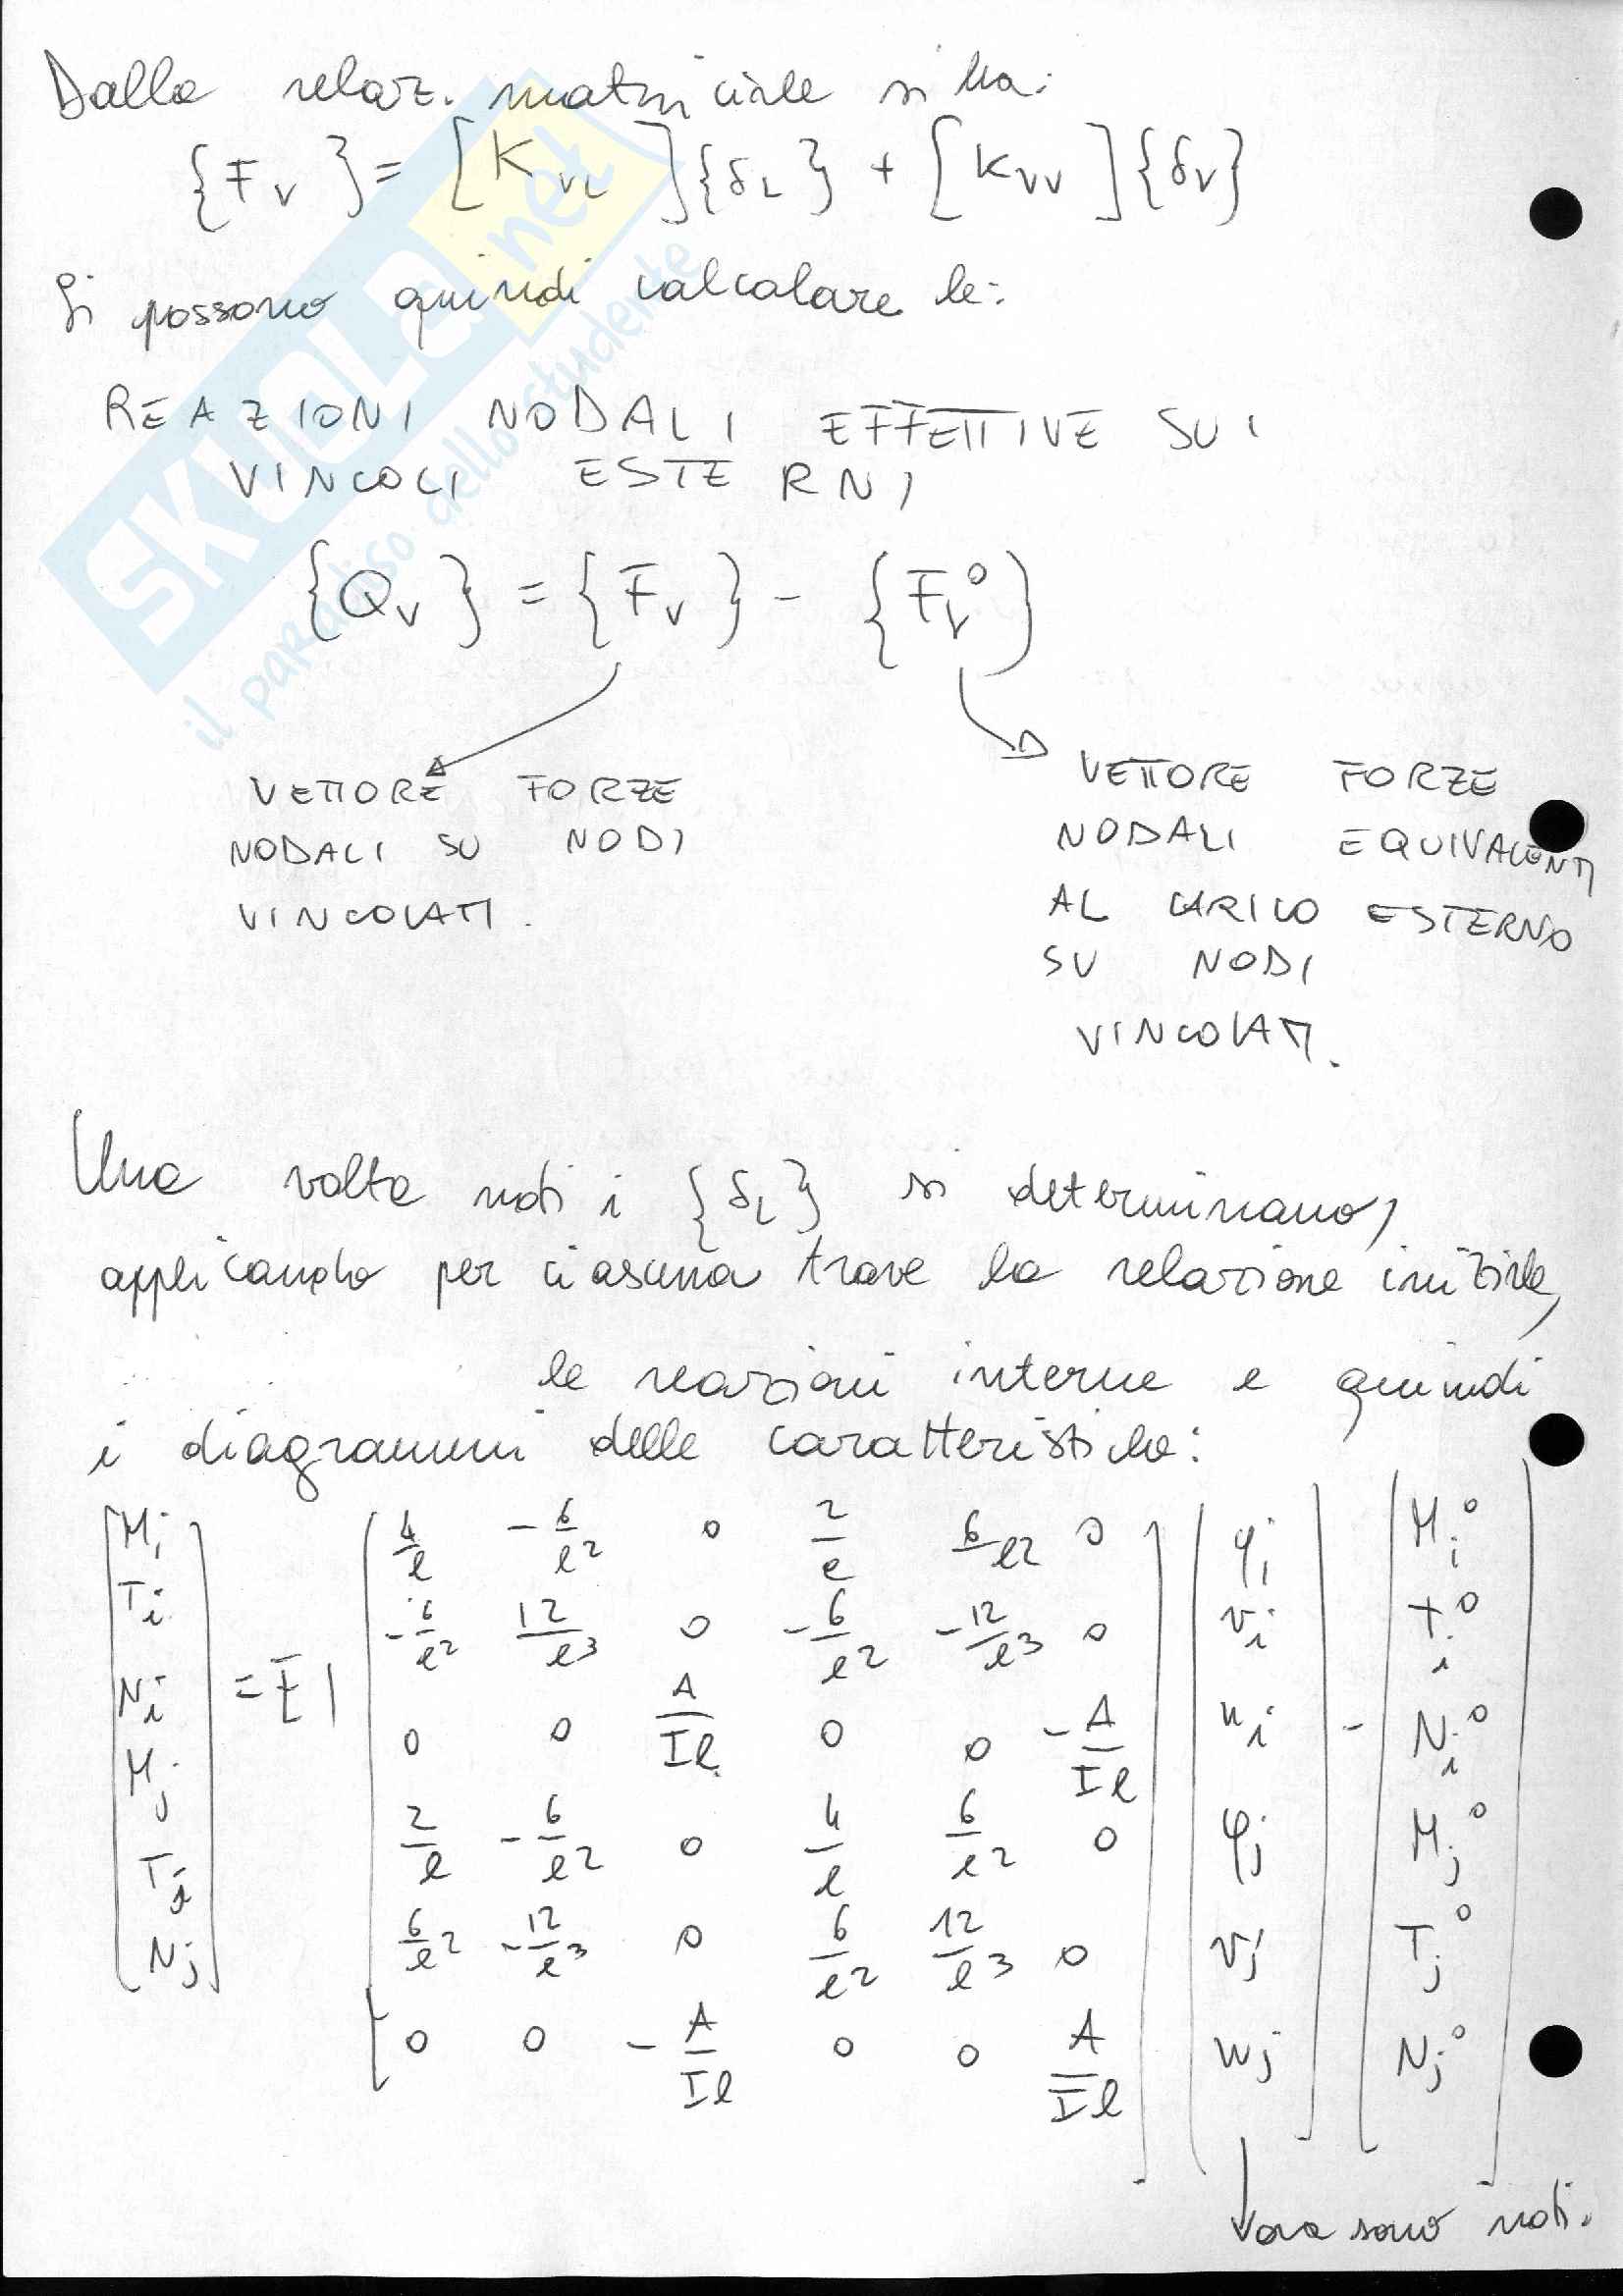 Dalla relaz. matriciale si ha:
{F_V} = [K_VL]{δ_L} + [K_VV]{δ_V}
Si possono quindi calcolare le:
REAZIONI NODALI EFFETTIVE SUI
VINCOLI ESTERNI
{Q_V} = {F_V} - {F_V^0}
VETTORE FORZE
NODALI SU NODI
VINCOLATI.
VETTORE FORZE
NODALI EQUIVALENTI
AL CARICO ESTERNO
SU NODI
VINCOLATI.
Una volta noti i {δ_L} si determinano,
applicando per ciascuna trave la relazione iniziale,
le reazioni interne e quindi
i diagrammi delle caratteristiche:
M_i 4/l -6/l^2 0 2/l 6/l^2 0 φ_i M_i^0
T_i -6/l^2 12/l^3 0 -6/l^2 -12/l^3 0 v_i T_i^0
N_i = EI 0 0 A/Il 0 0 -A/Il u_i - N_i^0
M_j 2/l -6/l^2 0 4/l 6/l^2 0 φ_j M_j^0
T_j 6/l^2 -12/l^3 0 6/l^2 12/l^3 0 v_j T_j^0
N_j 0 0 -A/Il 0 0 A/Il w_j N_j^0
ora sono noti.
SKUOLA.net
il paradiso dello studente